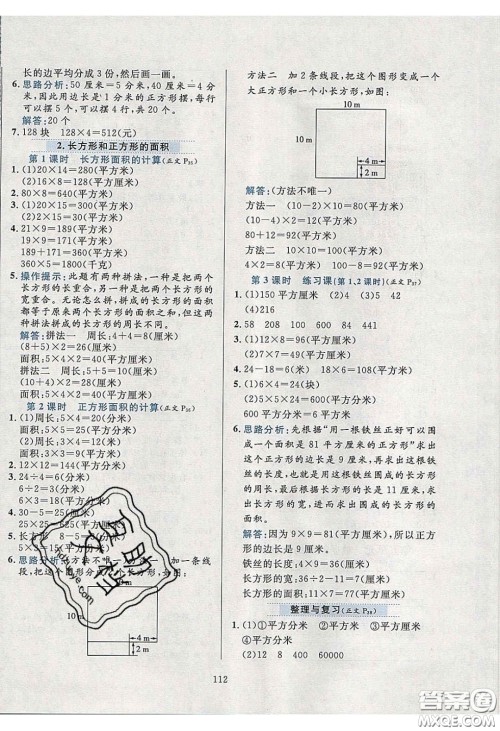 长的边平均分成 3 份,然后画一画。
6. 思路分析:20 厘米=5 分米,40 厘米=4 分米,因此用边长是 1 分米的正方形摆,每行可以摆 5 个,可以摆 4 行,共 20 个。
解答:20 个
7. 128 块 128×4=512(元)
2. 长方形和正方形的面积
第 1 课时 长方形面积的计算(正文 P35)
1. (1)20×14=280(平方厘米)
(2)16×8=128(平方厘米)
2. (1)20×9=180(平方分米)
(2)20×15=300(平方厘米)
4. 21×9=189(平方厘米)
19×9=171(平方厘米)
189+171=360(平方厘米)
360×5=1800(千克)
5. 操作提示:此题有两种拼法,一种是把两个长方形的长重合,一种是把两个长方形的宽重合。无论怎么拼,拼成的长方形的面积都是原来两个长方形的面积之和,但这两种拼法拼成的长方形的周长不同。
解答:拼法一 周长:(5+4)×2=18(厘米)
面积:5×4×2=40(平方厘米)
拼法二 周长:
面积:5×4×2=40(平方厘米)
第 2 课时 正方形面积的计算(正文
1. (1)周长:5×4=20(分米)
面积:5×5=25(平方分米)
(2)周长:
面积:
2. 12×12=144(平方分米)
3. 24÷4=6(厘米)
6÷2=3(厘米)
6×3=18(平方厘米)
4. 30-5=25(厘米)
25×25=625(平方厘米)
5. 长方形
5×3=15(平方
6. 思路分析:
加一条线
段,把这个图形
如图:
10 m
4 m
2 m
方法二 加 2 条线段,把这个图形变成一个大正方形和一个小长方形,如图:
10 m
10 m
4 m
2 m
解答:(方法不唯一)
方法一 (10-2)×10=80(平方米)
(10-4)×2=12(平方米)
80+12=92(平方米)
方法二 10×10=100(平方米)
4×2=8(平方米) 100-8=92(平方米)
第 3 课时 练习课(第 1、2 课时)(正文 P37)
1. (1)150 平方厘米 (2)4 (3)5 41
(4)216
2. 58 208 100 600 64 84
3. (1)12×8=96(平方厘米)
(2)8×8=64(平方厘米)
4. 24-18=6(厘米) 18×6=108(平方厘米)
5. (1)6×4=24(块)
(2)25×24=600(平方分米)
600 平方分米=6 平方米
6. 思路分析:先根据“用一根铁丝正好可以围成一个面积是 81 平方厘米的正方形”求出这个正方形的边长是 9 厘米,再求出这根铁丝的长度,也就是围成的长方形的周长,进而求出长方形的宽,最后求出围成的长方形的面积。
解答:因为 9×9=81(平方厘米),所以正方形的边长是 9 厘米。
铁丝的长度:9×4=36(厘米)
长方形的宽:36÷2-11=7(厘米)
长方形的面积:11×7=77(平方厘米)
整理与复习(正文 P39)
1. (1)①平方分米 ②平方米 ③平方厘米
④平方厘米
(2)12 8 400 60000
112